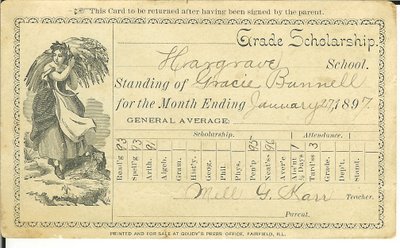 This Card to be returned after having been signed by the parent.
Grade Scholarship.
Hargrave School.
Standing of Gracie Bunnell
for the Month Ending January 27, 1897.
GENERAL AVERAGE:
Scholarship. Attendance.
Read'g 93 Spell'g 93 Arith. 91 Algeb. Gram. Hist'y. Geog. Phil. Phys. Pen'p 95 Neat'ss 90 Aver'e Abs'nt ½ Days 1 Tard'ss 3 Grade. Dep't. Stand.
Mell G. Karr Teacher.
Parent.
PRINTED AND FOR SALE AT GOUDY'S PRESS OFFICE, FAIRFIELD, ILL.